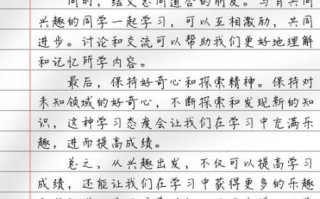 同时，结交志同道合的朋友。与有共同
兴趣的同学一起学习，可以互相激励，共同
进步。讨论和交流可以帮助我们更好地理解
和记忆所学内容。
最后，保持好奇心和探索精神。保持对
未知领域的好奇心，不断探索和发现新的知
识，这种学习态度会让我们在学习中充满乐
趣，进而提高成绩。
总之，从兴趣出发，不仅可以提高学习
成绩，还能让我们在学习中获得更多的乐趣